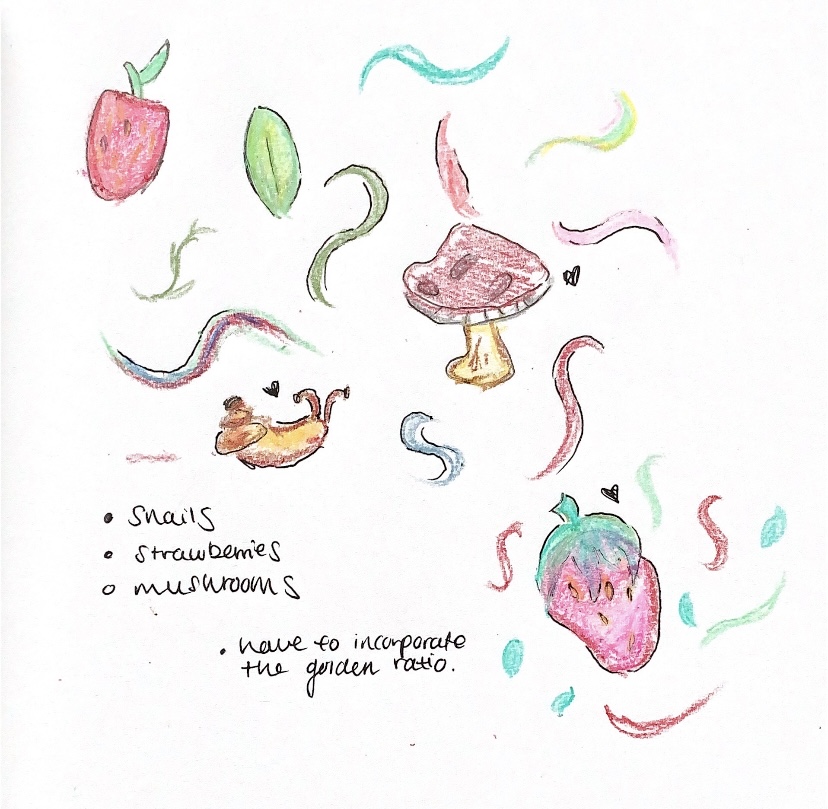 • snails
• strawberries
○ mushrooms
• have to incorporate
the golden ratio.